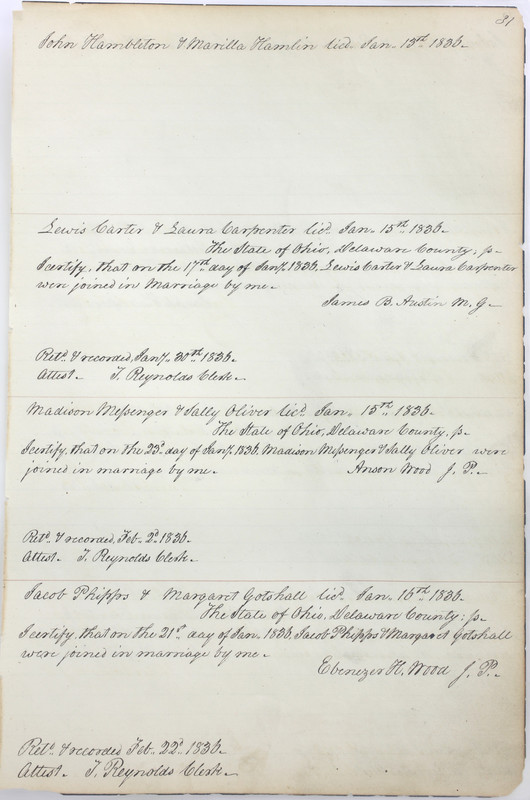 31
John Hambleton & Marilla Hamlin licd. Jan. 13th 1836.
Lewis Carter & Laura Carpenter licd. Jan. 15th 1836.
The State of Ohio, Delaware County, ss.
I certify, that on the 17th day of Jany. 1836, Lewis Carter & Laura Carpenter
were joined in Marriage by me.
James B. Austin M. G.
Retd. & recorded, Jany. 30th 1836.
Attest. T. Reynolds Clerk.
Madison Messenger & Sally Oliver licd. Jan. 15th 1836.
The State of Ohio, Delaware County, ss.
I certify, that on the 23d. day of Jany. 1836, Madison Messenger & Sally Oliver were
joined in marriage by me. Anson Wood J. P.
Retd. & recorded, Feb. 2d. 1836.
Attest. T. Reynolds Clerk.
Jacob Phipps & Margaret Gotshall licd. Jan. 16th 1836.
The State of Ohio, Delaware County; ss.
I certify, that on the 21st day of Jan. 1836, Jacob Phipps & Margaret Gotshall
were joined in marriage by me.
Ebenezer H. Wood J. P.
Retd. & recorded Feb. 22d. 1836.
Attest. T. Reynolds Clerk.